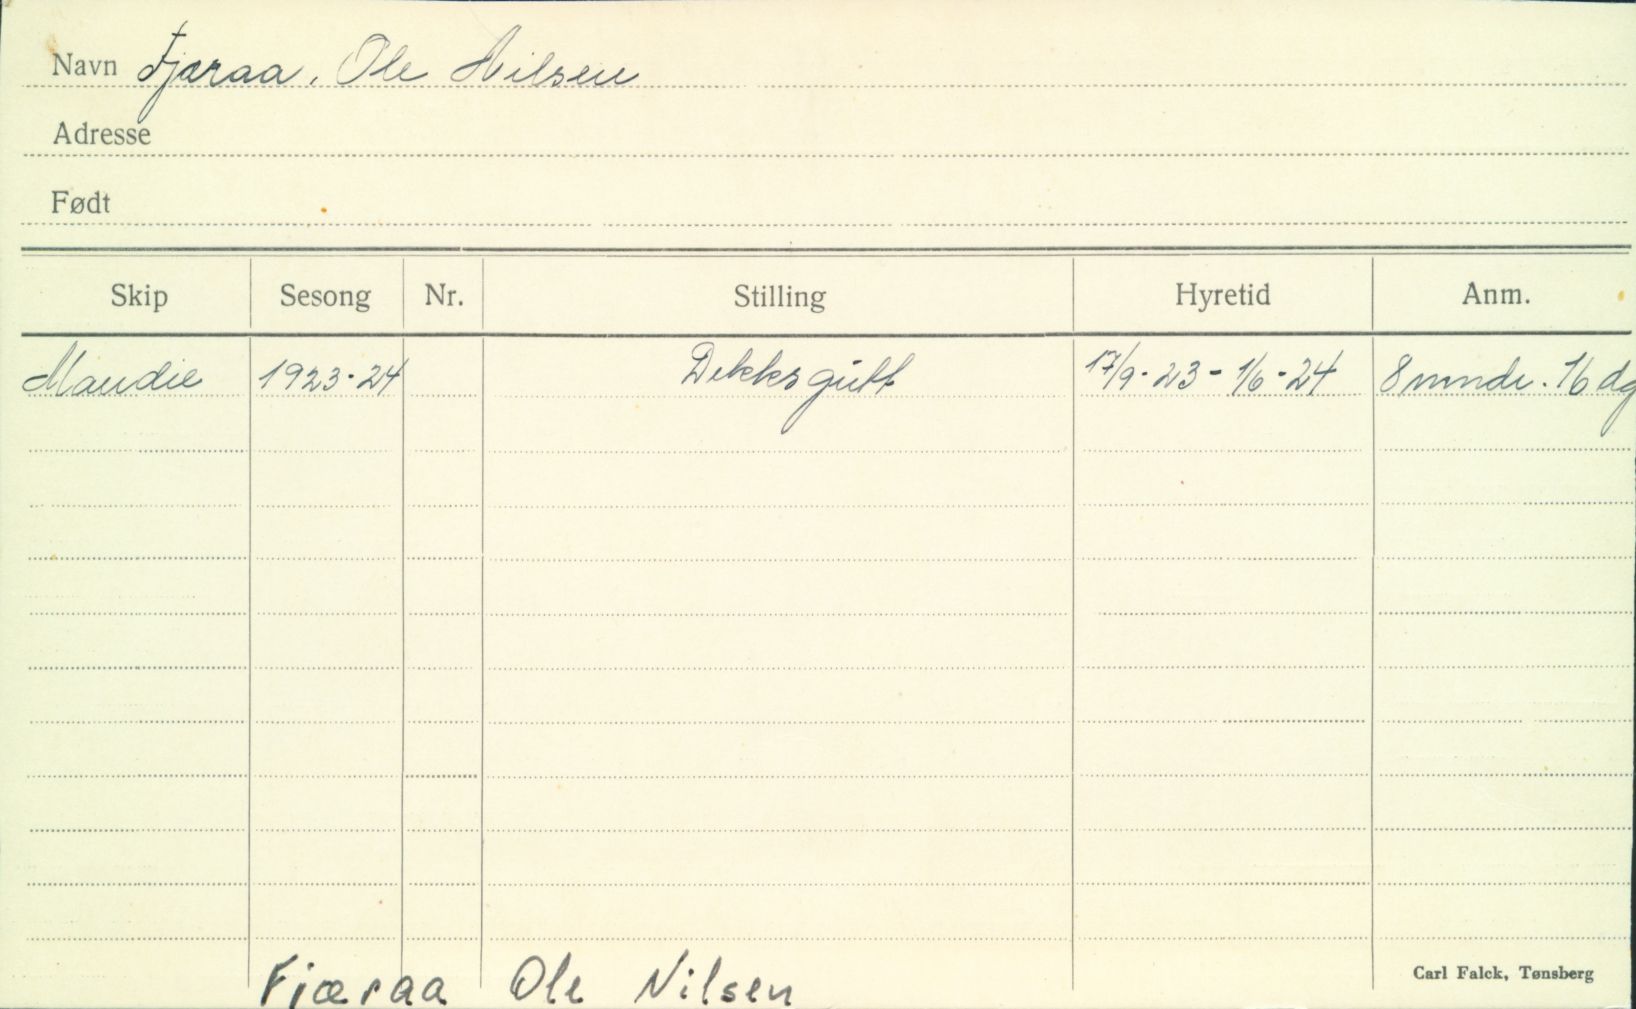 Navn Fjæraa, Ole Nilsen
Adresse
Født
Skip Sesong Nr. Stilling Hyretid Anm.
Maudie 1923-24 Dekksgutt 17/9-23 - 1/6-24 8 mndr. 16 dg
Fjæraa Ole Nilsen
Carl Falck, Tønsberg